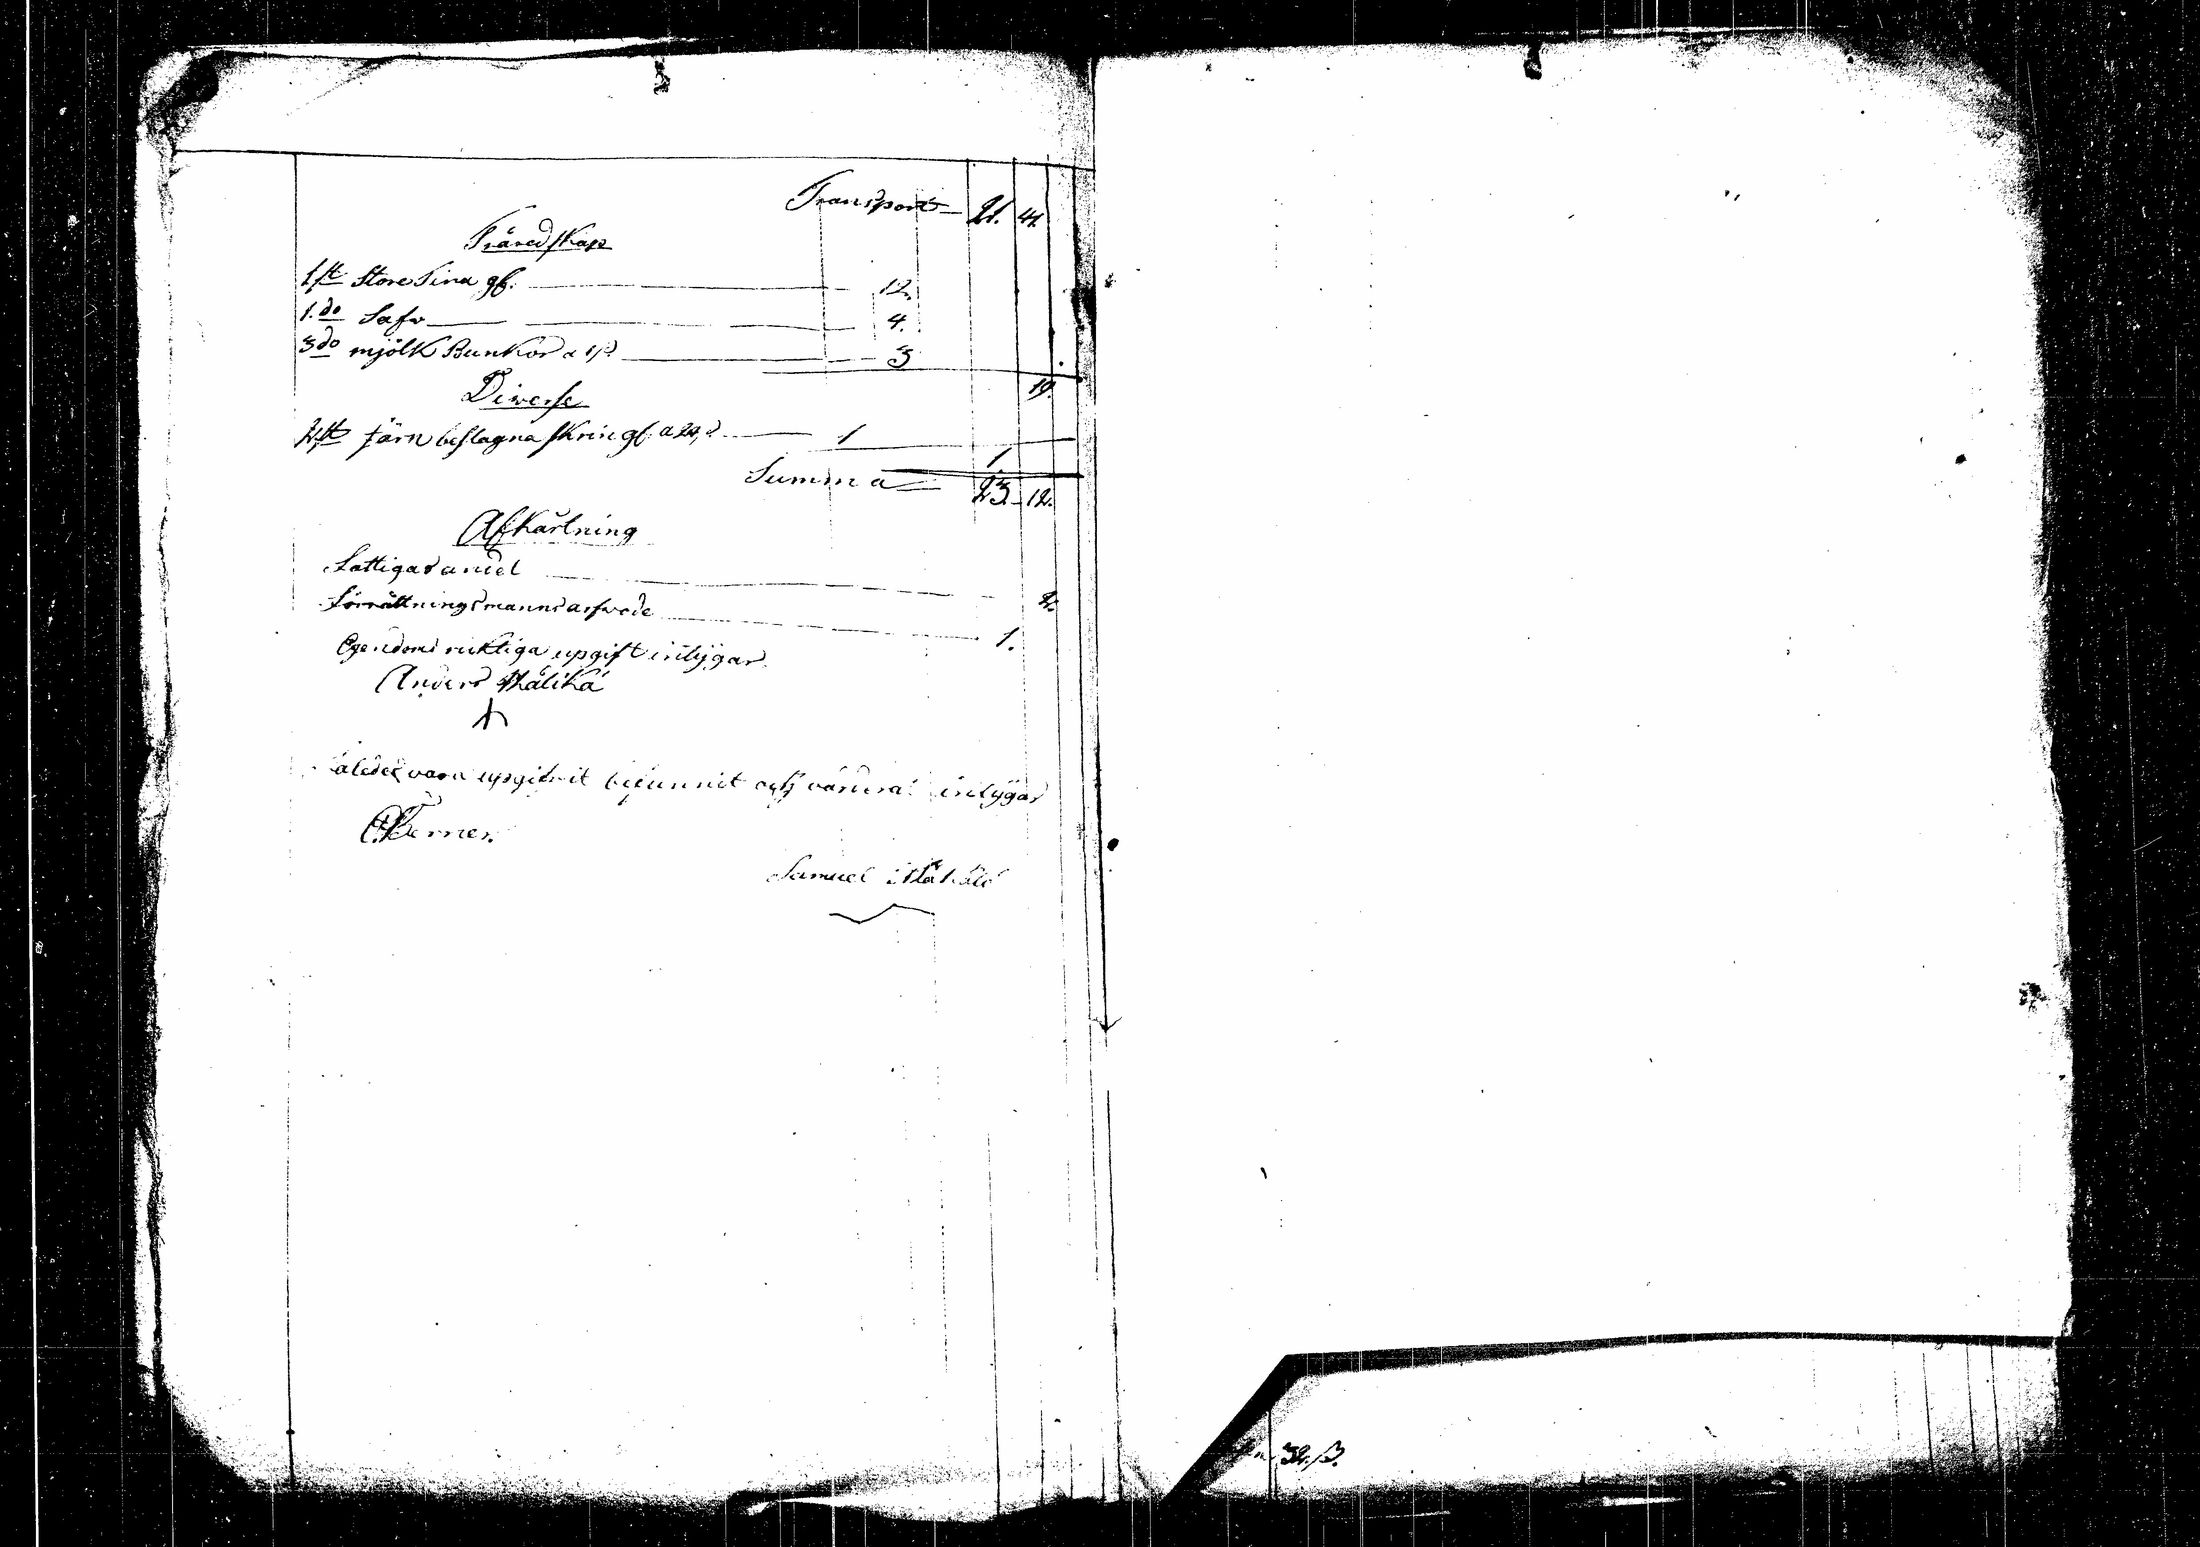 Transport 21. 41.
Träredskap
1 st Store Tina gl. 12.
1. doSå 4.
3 do mjölk Bunkor a 1 s 3
19.
Diverse
2 st järn beslagna skrin gl. a 24 s 1
1.
Summa 23. 12.
Afkårtning
Fattigas andel 2.
Förrättningsmanns arfvode 1.
Egendoms riktiga upgift intÿgar
Anders
således vara upgifvit befunnit och värderat intÿgar
Samuel
32. s.